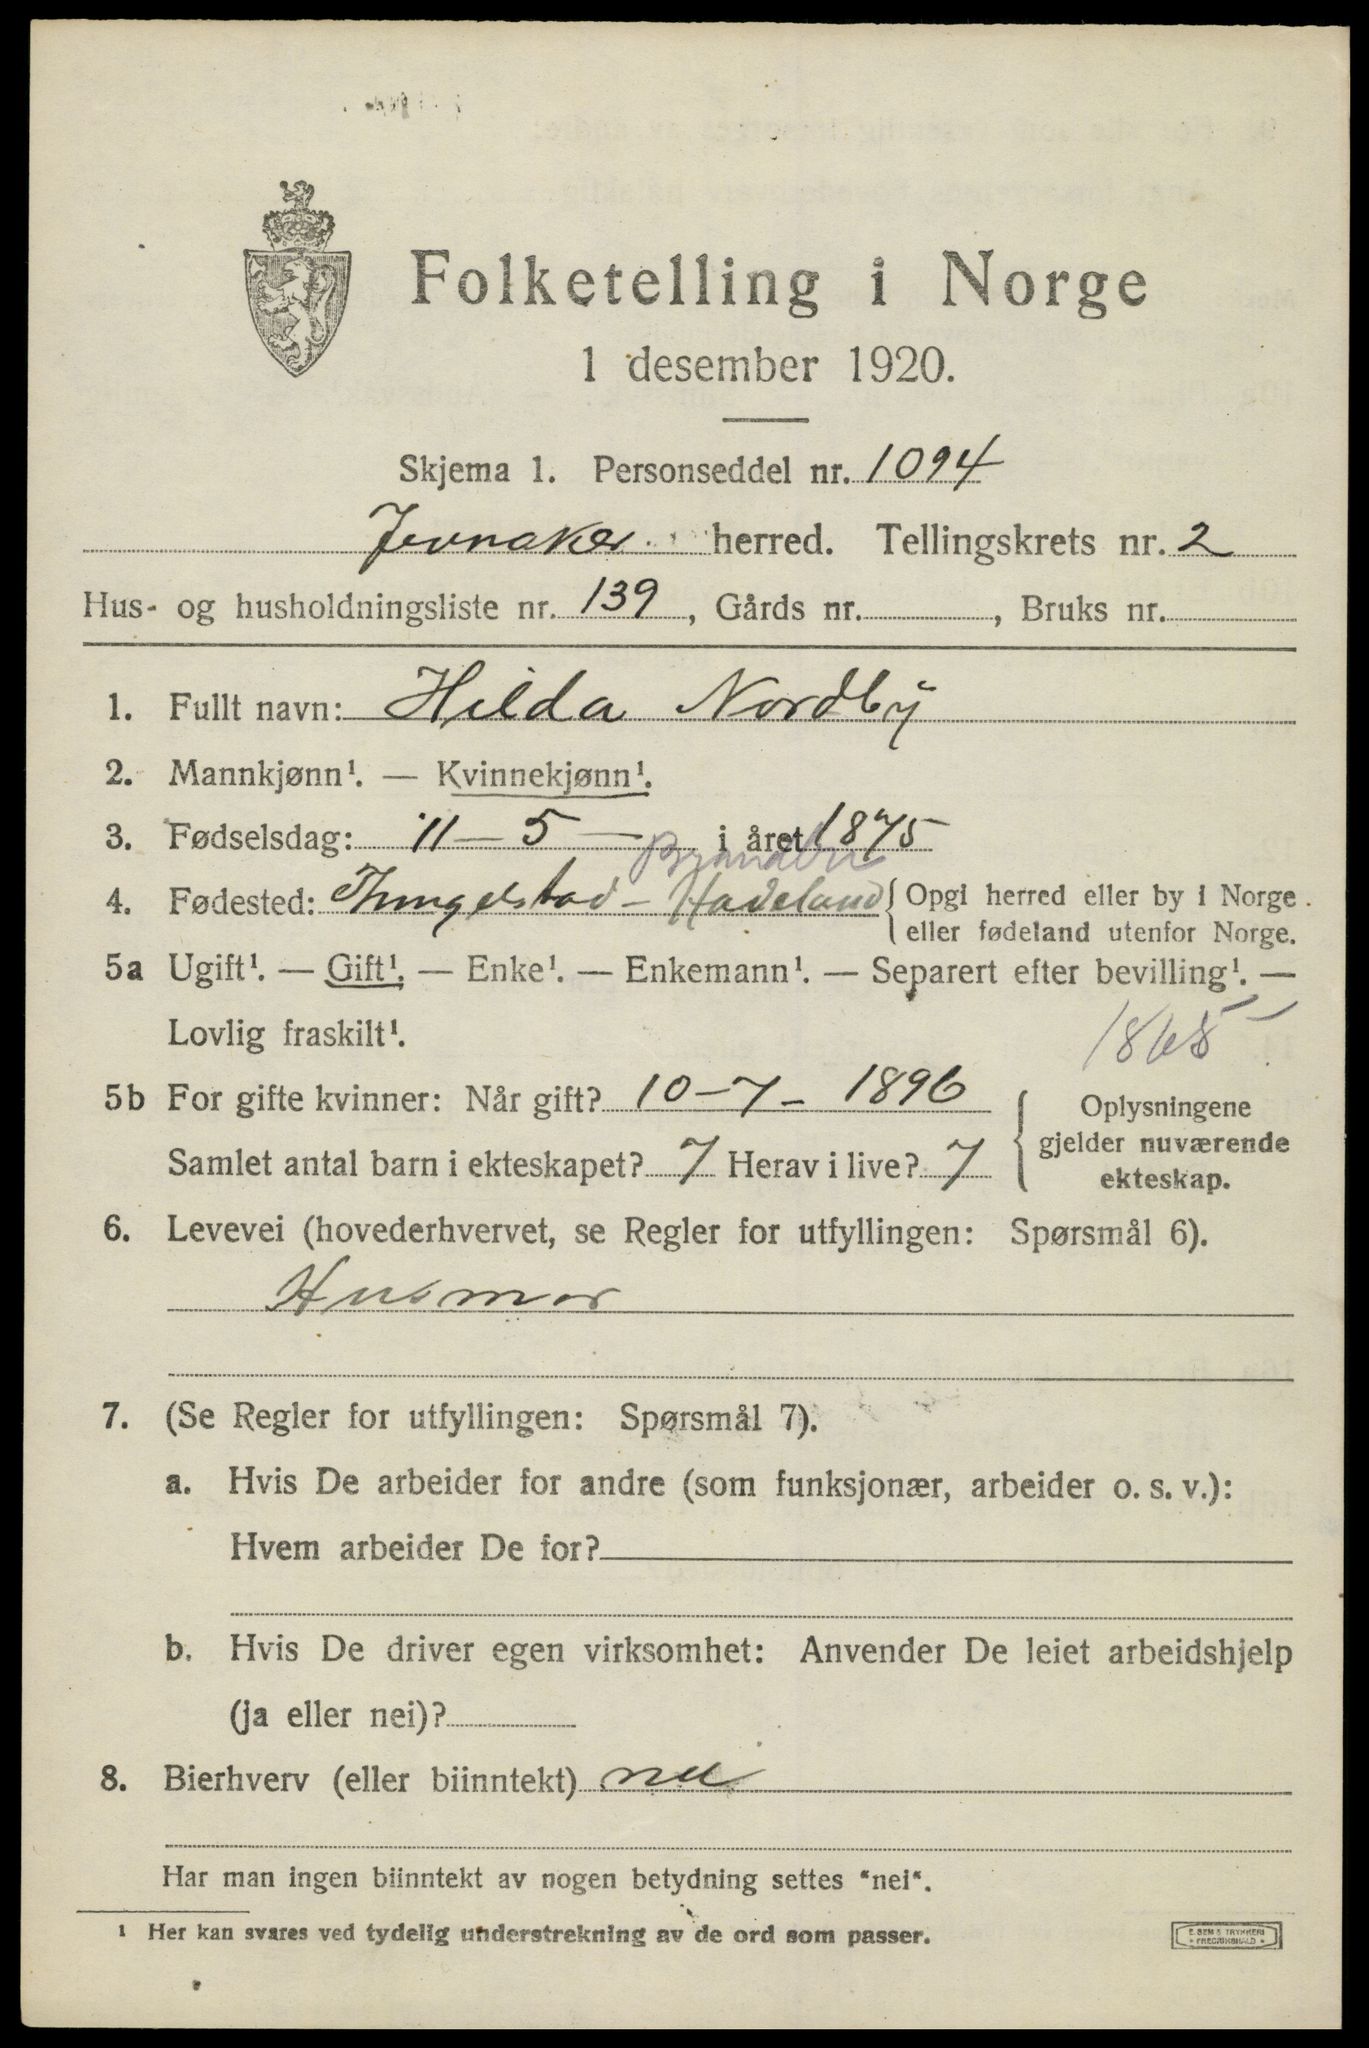 Folketelling i Norge
1 desember 1920.
Skjema 1. Personseddel nr. 1094
Jevnaker herred. Tellingskrets nr. 2
Hus- og husholdningsliste nr. 139, Gårds nr. , Bruks nr.
1. Fullt navn: Hilda Nordby
2. Mannkjønn¹. — Kvinnekjønn¹.
3. Fødselsdag: 11 — 5 — i året 1875
4. Fødested: Thingelstad - Hadeland { Opgi herred eller by i Norge
eller fødeland utenfor Norge.
5a Ugift¹. — Gift¹. — Enke¹. — Enkemann¹. — Separert efter bevilling¹. —
Lovlig fraskilt¹.
1865
5b For gifte kvinner: Når gift? 10 - 7 - 1896
Samlet antal barn i ekteskapet? 7 Herav i live? 7
Oplysningene
gjelder nuværende
ekteskap.
6. Levevei (hovederhvervet, se Regler for utfyllingen: Spørsmål 6).
Husmor
7. (Se Regler for utfyllingen: Spørsmål 7).
a. Hvis De arbeider for andre (som funksjonær, arbeider o. s. v.):
Hvem arbeider De for?
b. Hvis De driver egen virksomhet: Anvender De leiet arbeidshjelp
(ja eller nei)?
8. Bierhverv (eller biinntekt) nei
Har man ingen biinntekt av nogen betydning settes "nei".
¹ Her kan svares ved tydelig understrekning av de ord som passer.
E. SEM'S TRYKKERI
FREDRIKSHALD